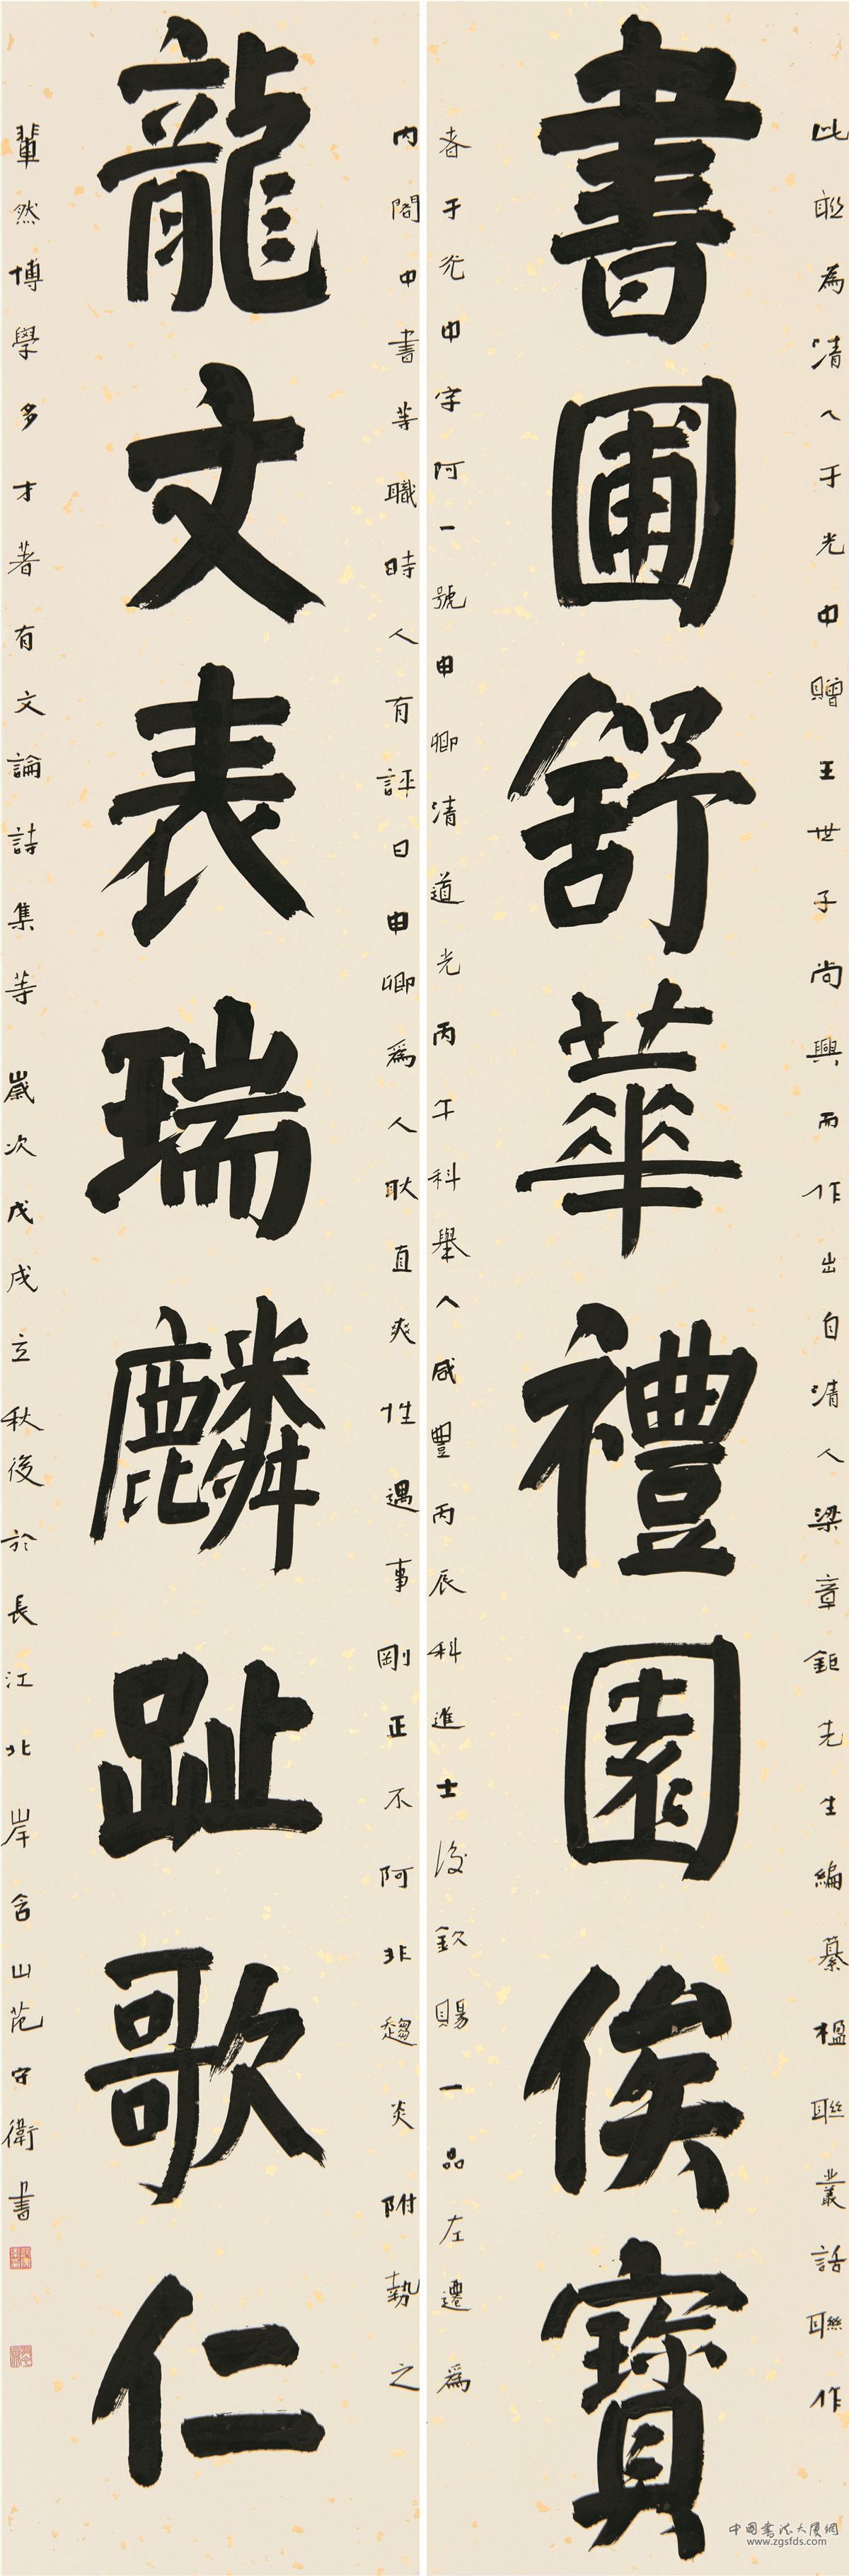 此聯為清人于光中贈王世子尚興而作出自清人梁章鉅先生編纂楹聯叢話聯作
書圃舒華禮園俟寶
者于光中字阿一號申卿清道光丙午科舉人咸豐丙辰科進士後欽賜一品左遷為
內閣中書等職時人有評曰申卿為人耿直爽性遇事剛正不阿非趨炎附勢之
龍文表瑞麟趾歌仁
輩然博學多才著有文論詩集等歲次戊戌立秋後於長江北岸含山范守衛書
中国书法大厦網
www.zgsfds.com